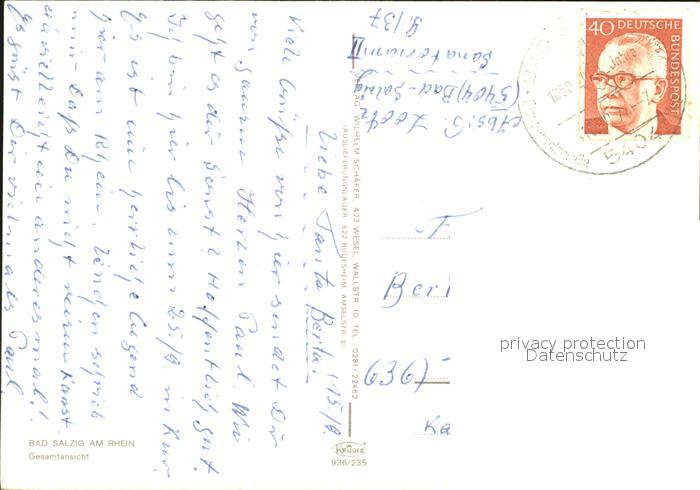 15./9.
Liebe Tante Berta!
Viele Grüße von hier sendet Dir
von ganzem Herzen Paul. Wie
geht es Dir sonst? Hoffentlich gut.
Ich bin hier bis zum 25./9. in Kur
Es ist eine herrliche Gegend
hier am Rhein.
mir daß Du nicht
vielleicht ein anderes mal!
Es grüßt Dir vielmals Paul.
BAD SALZIG AM RHEIN
Gesamtansicht
VERLAG WILHELM SCHÄFER, 423 WESEL, WALLSTR. 10, TEL. 0281/22462
(AUSLIEFERUNGSLAGER 622 RÜDESHEIM, AMSELSTR. 9)
KRÜGER
936/235
Abs.: P.
(5404) Bad-Salzig
Sanatorium II
40 DEUTSCHE BUNDESPOST
5404
Berl
636)
Ka
privacy protection
Datenschutz